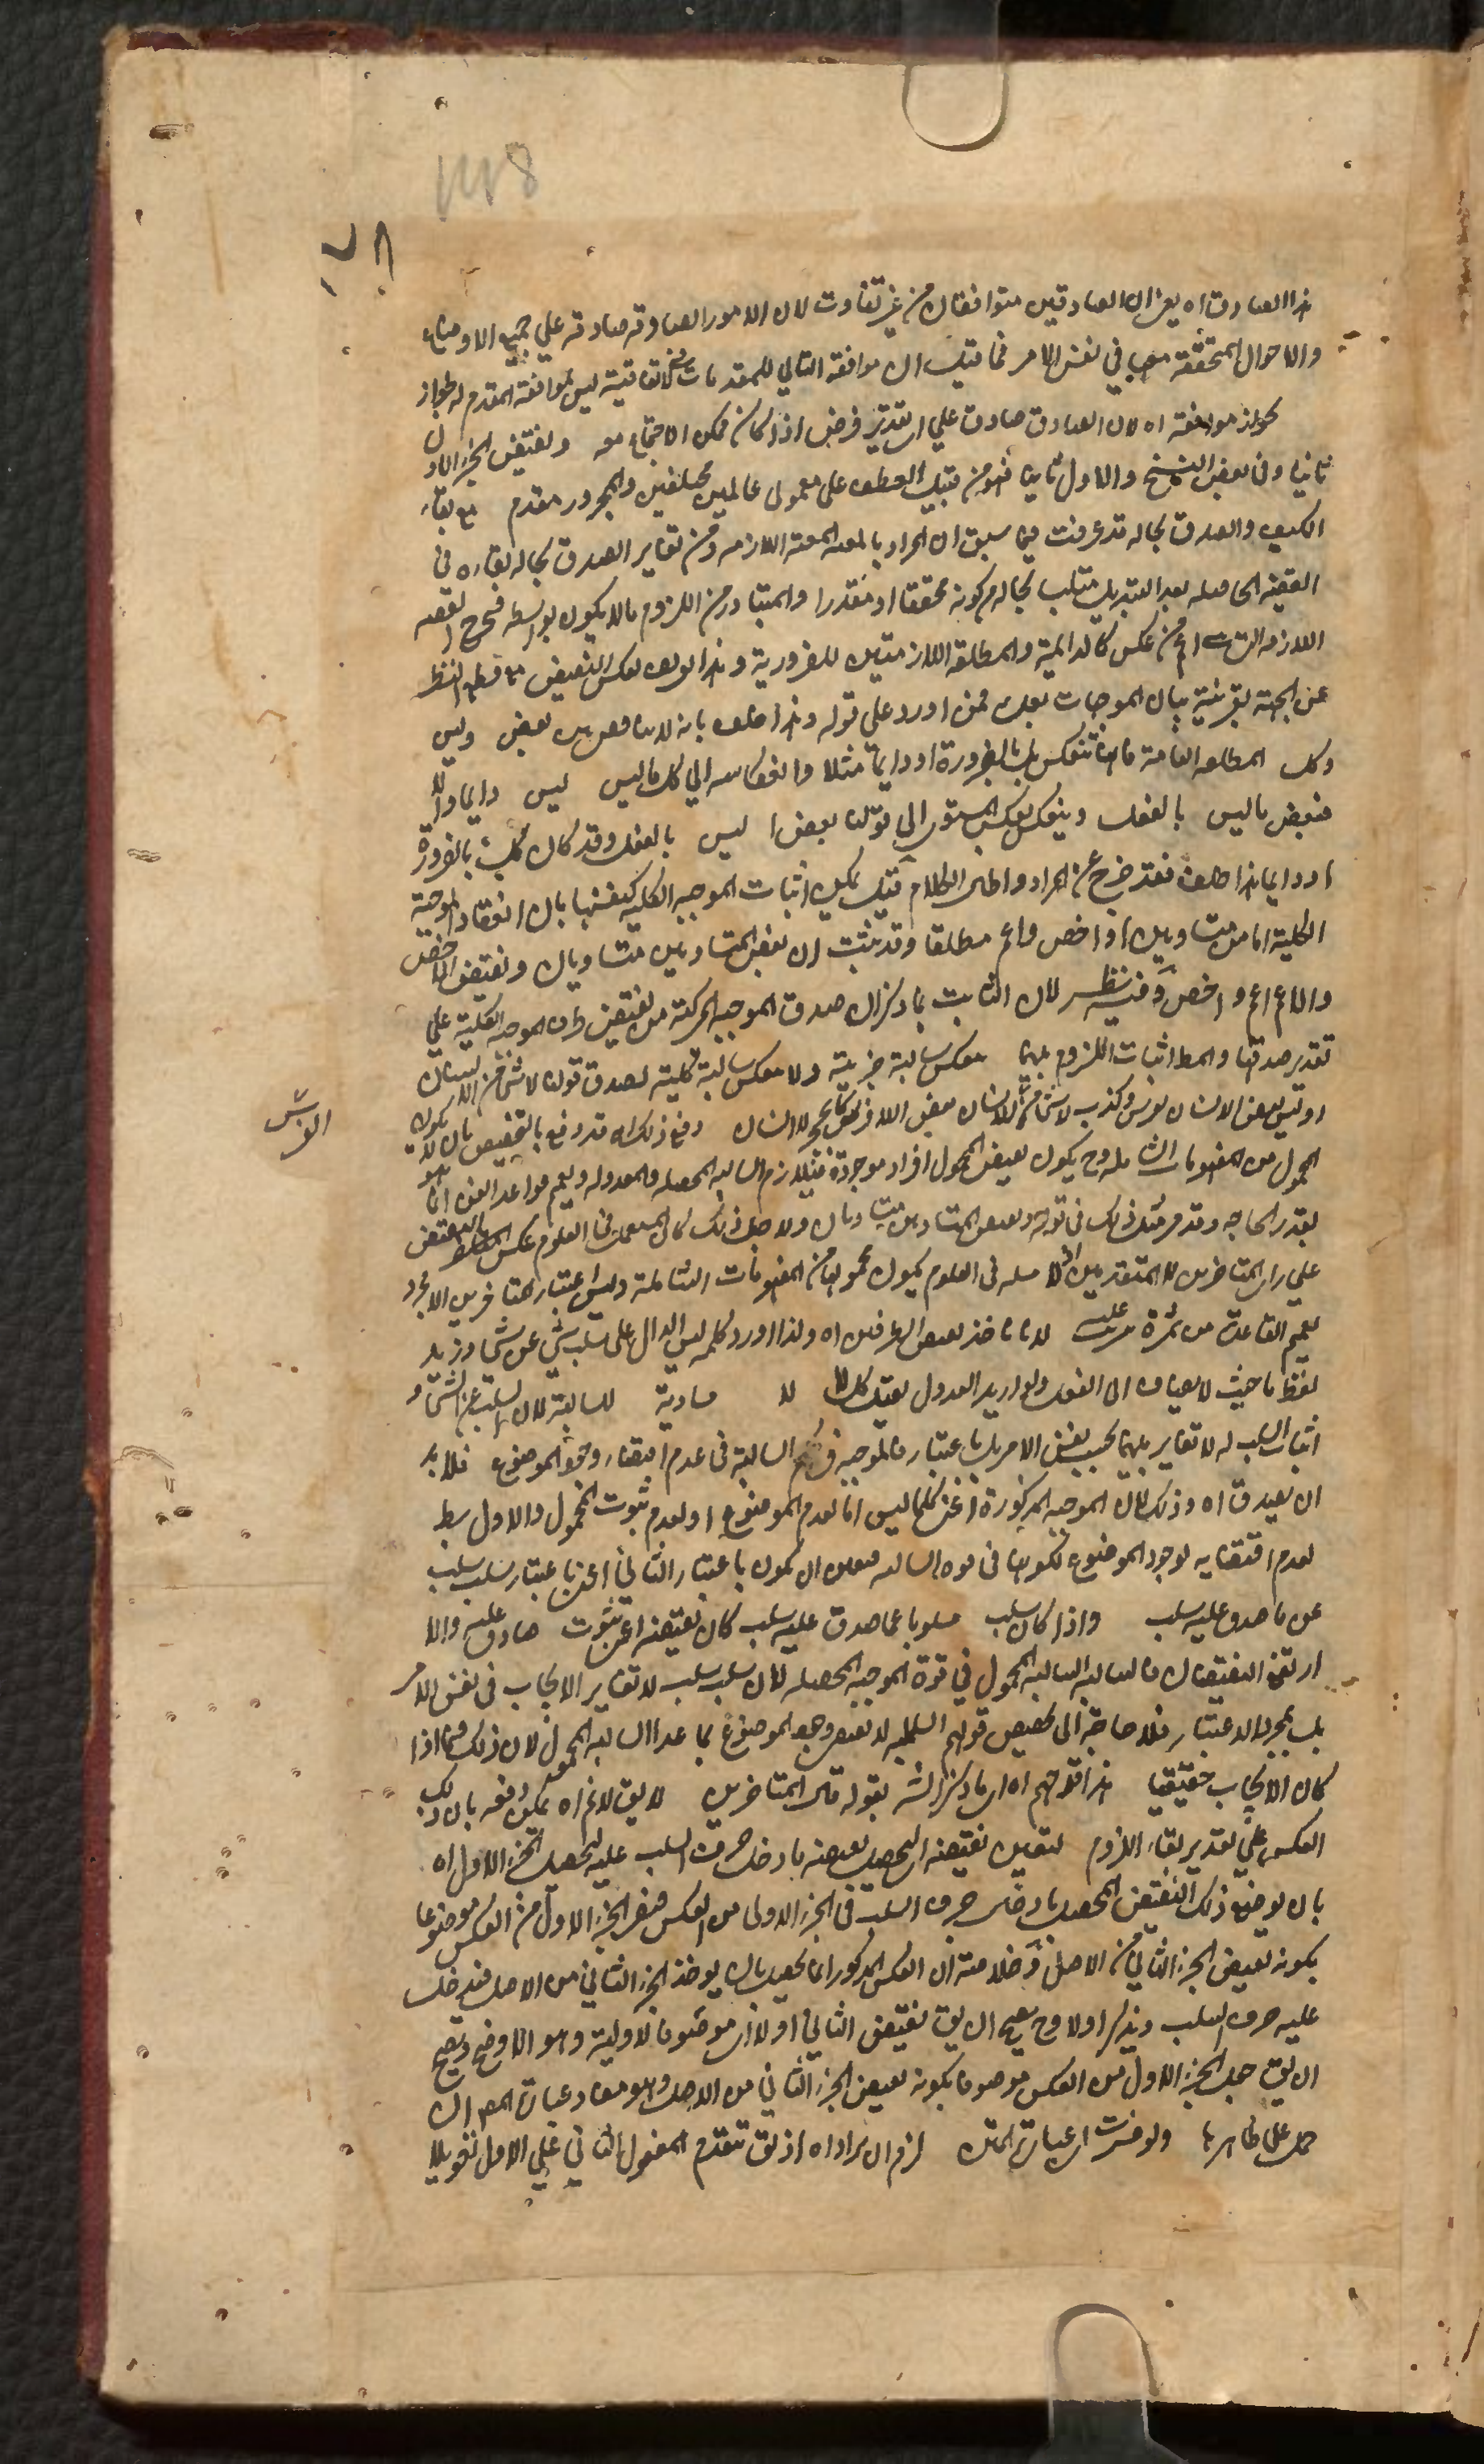 ٨
هذا الصادق اه يعني ان الصادقين متوافقان من غير تفاوت لان الامور الصادقة صادقة علي جميع الاوضاع
والاحوال المتحققة معها في نفس الامر فما قيل ان موافقة التالي للمقدم في الاتفاقية ليس لموافقة المقدم له لجواز
موافقته اه لان الصادق صادق علي اي تقدير فرض اذا كان ممكن الاجتماع معه ونقيض الجزء الاول
ثانيا وفي بعض النسخ والاول ثانيا فهو من قبيل العطف على معمولي عاملين مختلفين والمجرور مقدم مع بقاء
الكيف والصدق بحاله قد عرفت فيما سبق ان المراد بالمعية المعية اللازمة ومن تفاير الصدق بحاله بقاءه في
القضية الحاصلة بعد التبديل بحاله من كونه محققا او مقدرا والمتبادر من اللزوم ما لا يكون بواسطة فخرج القضية
اللازمة التي اعم من عكس كالدائمة والمطلقة اللازمتين للضرورية وهذا تعريف لعكس النقيض مع قطع النظر
عن الجهة بقرينة بيان الموجهات بعده فمن اورد على قوله وهذا خلف بانه لا تناقض بين بعض وليس
وكل المطلقة العامة فانها تنعكس بالضرورة او دايما مثلا وانعكاسه الي كل ما ليس ليس دايما والا
فبعض ما ليس بالفعل وينعكس بعكس المستوي الي قولنا بعض ليس بالفعل وقد كان كل بالضرورة
او دايما هذا خلف فقد خرج عن المراد واطال الكلام قيل يمكن اثبات الموجبة الكلية كنفسها بان انعقاد الموجبة
الكلية اما من متساويين او اخص واعم مطلقا وقد ثبت ان نقيض المتساويين متساويان ونقيض الاخص
والاعم اعم واخص وفيه نظر لان الثابت بما ذكر ان صدق الموجبة المركبة من نقيضي طرفي الموجبة الكلية علي
تقدير صدقها والمط اثبات اللزوم بينهما بعكس سالبة جزئية ولا بعكس سالبة كلية لصدق قولنا لا شئ من الانسان
او ليس بعض الانسان بفرس وكذب لا شئ من اللاانسان بعض اللافرس كالحجر لاانسان وقع ذلك اه قد دفع بالتخصيص بان لا يكون
الفرس
المحمول من المفهومات الشاملة وح يكون لنقيض المحمول افراد موجودة فيتلازم السالبة المحصلة والمعدولة وتعميم قواعد الفن انما هو
بقدر الحاجة وقد مر مثل ذلك في قوله ونقيض المتساويين متساويان ولاجل ذلك كان المستعمل في العلوم عكس النقيض
علي راي المتاخرين لا المتقدمين اذ لا مسئلة في العلوم يكون محمولها من المفهومات الشاملة وليس اعتبار المتاخرين الا لمجرد
تعميم القاعدة من ثمرة مترتبة عليه لانا ناخذ نقيض الطرفين اه ولذا اورد كلمة ليس الدال على سلب شئ عن شئ وزيد
لفظ ما حيث لا يضاف الى الفعل ولو اريد العدول لقيل كل لا لا مساوية للسالبة لان السلب عن الشئ و
اثبات السلب له لا تغاير بينهما بحسب نفس الامر بل باعتبار فالموجبة في حكم السالبة في عدم اقتضاء وجود الموضوع فلا بد
ان يصدق اه وذلك لان الموجبة المذكورة اعني كلما ليس انما لعدم الموضوع او لعدم ثبوت المحمول والاول بط
لعدم اقتضايه لوجود الموضوع لكونها في قوة السالبة فتعين ان يكون باعتبار الثاني اعني باعتبار سلب سلب
عن ما صدق عليه سلب واذا كان سلب مسلوبا عما صدق عليه سلب كان نقيضه اعني ثبوت صادق عليه والا
ارتفع النقيضان فالسالبة السالبة المحمول في قوة الموجبة المحصلة لان سلب سلب لا تغاير الايجاب في نفس الامر
بل بمجرد الاعتبار فلا حاجة الى تخصيص قولهم السلب لا يقتضي وجود الموضوع بما عدا السالبة المحمول لان ذلك فيما اذا
كان الايجاب حقيقيا هذا توجيه اه اي ما ذكر الش بقوله قال المتاخرين لا يق لانم اه يمكن دفعه بان ذلك
العكس علي تقدير بقاء اللزوم لتعين نقيضه اي تحصيل نقيضه بادخال حرف السلب عليه لتحصيل الجزء الاول اه
بان يوضع ذلك النقيض المحصل بادخال حرف السلب في الجزء الاول من العكس فيصير الجزء الاول من العكس موصوفا
بكونه نقيض الجزء الثاني من الاصل وخلاصته ان العكس المذكور انما يحصل بان يوخذ الجزء الثاني من الاصل فيدخل
عليه حرف السلب ويذكر اولا وح يصح ان يق نقيض الثاني اولا اي موصوفا للاولية وهو الاوضح ويصح
ان يق جعل الجزء الاول من العكس موصوفا بكونه نقيض الجزء الثاني من الاصل وهو مفاد عبارة المص ان
حمل على ظاهرها ولو فسرت اي عبارة المتن لزم ان يراد اه اذ يق تقدم المفعول الثاني علي الاول تعويلا